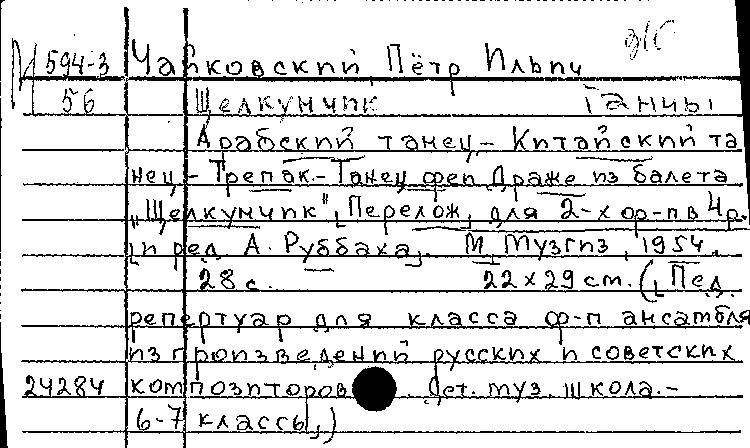 М 594-3 Чайковский, Пётр Ильич
56 Щелкунчик Танцы
Арабский танец – Китайский та
нец – Трепак – Танец феи Драже из балета
„Щелкунчик". [Перелож. для 2-х ф-п в 4 р.
[и ред. А. Руббаха]. М. Музгиз, 1954.
28 с. 22 x 29 cm. ([Пед.
репертуар для класса ф-п ансамбля
из произведений русских и советских
24284 композиторов. Дет. муз. школа. –
6-7 классы].)